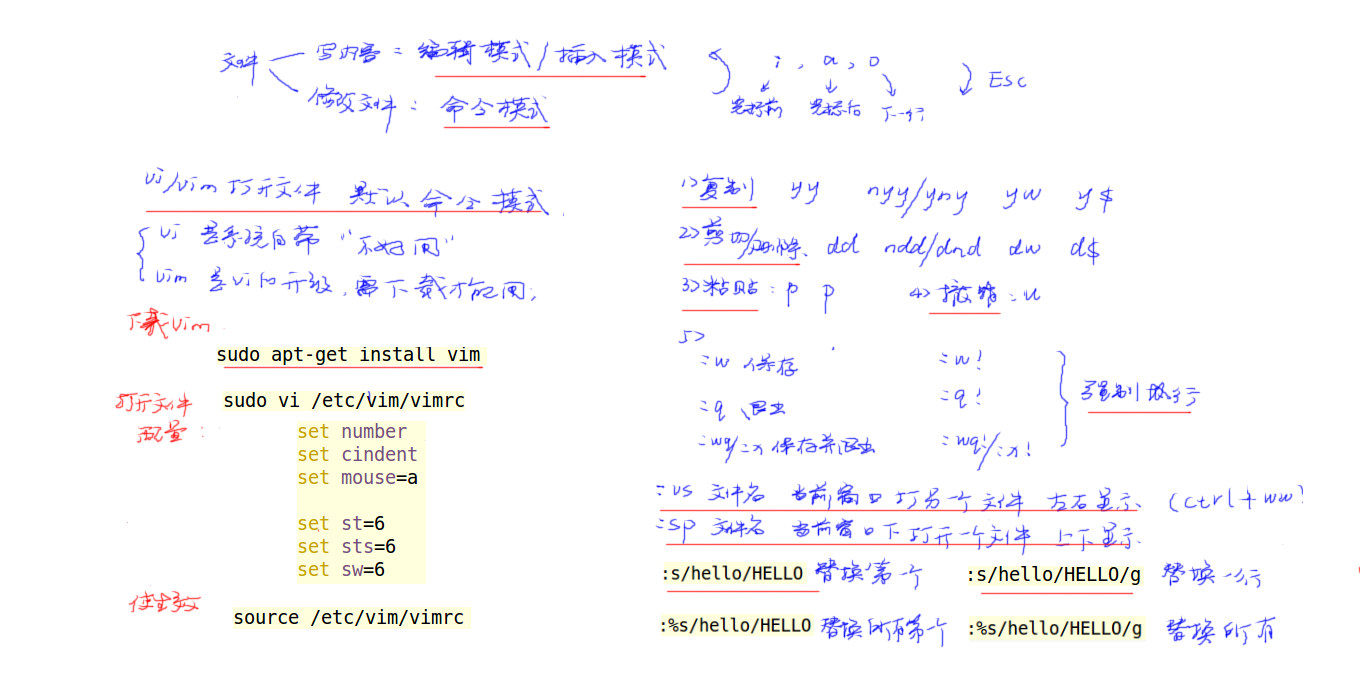 文件 写内容: 编辑模式/插入模式
修改文件: 命令模式
i, a, o
光标前 光标后 下一行
Esc
vi/vim 打开文件 默认 命令模式.
vi 是系统自带 "不好用"
vim 是vi的升级, 需下载才能用;
下载vim
sudo apt-get install vim
打开文件 sudo vi /etc/vim/vimrc
配置:
set number
set cindent
set mouse=a
set st=6
set sts=6
set sw=6
使生效
source /etc/vim/vimrc
1>复制 yy nyy/yny yw y$
2>剪切/删除、dd ndd/dnd dw d$
3>粘贴: p p 4>撤销: u
5>
:w 保存 :w!
:q 退出 :q!
:wq/:x 保存并退出 :wq!/:x!
强制执行
:vs 文件名 当前窗口打另一个文件 左右显示、(ctrl+ww)
:sp 文件名 当前窗口下打开一个文件 上下显示、
:s/hello/HELLO 替换第一个 :s/hello/HELLO/g 替换一行
:%s/hello/HELLO 替换所有第一个 :%s/hello/HELLO/g 替换所有